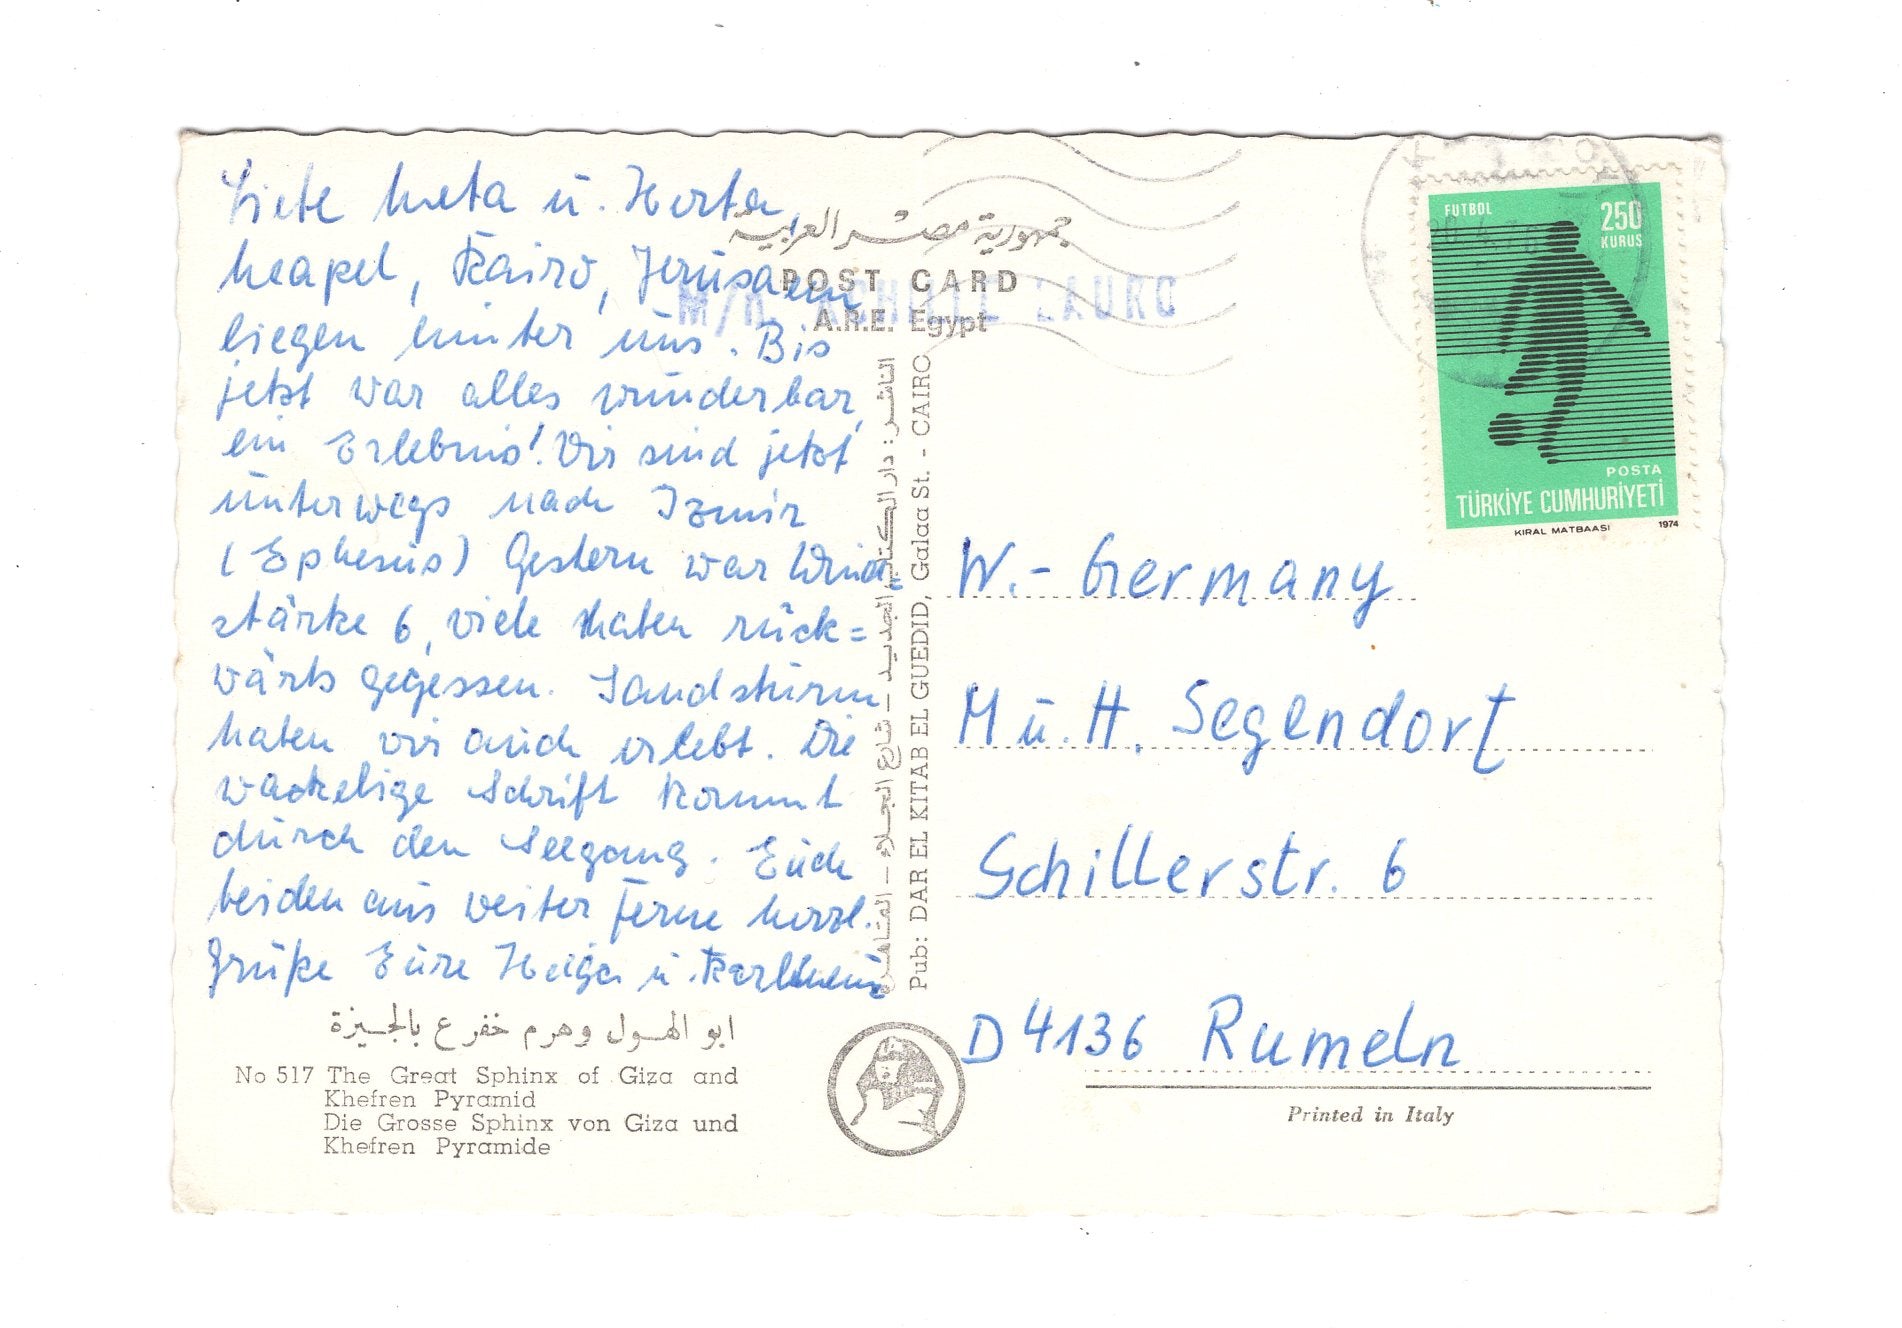 Liebe Meta u. Herta,
Neapel, Kairo, Jerusalem
liegen hinter uns. Bis
jetzt war alles wunderbar,
ein Erlebnis! Wir sind jetzt
unterwegs nach Izmir
(Ephesus) Gestern war Wind=
stärke 6, viele haben rück=
wärts gegessen. Sandsturm
haben wir auch erlebt. Die
wackelige Schrift kommt
durch den Seegang. Euch
beiden aus weiter Ferne herzl.
Grüße Eure Helga u. Karlheinz
ابو الهول وهرم خفرع بالجيزة
No 517 The Great Sphinx of Giza and
Khefren Pyramid
Die Grosse Sphinx von Giza und
Khefren Pyramide
جمهورية مصر العربية
POST CARD
A.R.E. Egypt
M/N ACHILLE LAURO
الناشر : دار الكتاب الجديد – شارع الجلاء – القاهرة
Pub: DAR EL KITAB EL GUEDID, Galaa St. - CAIRO
FUTBOL
250
KURUS
POSTA
TÜRKİYE CUMHURİYETİ
KIRAL MATBAASI 1974
W.- Germany
M u. H. Segendorf
Schillerstr. 6
D 4136 Rumeln
Printed in Italy